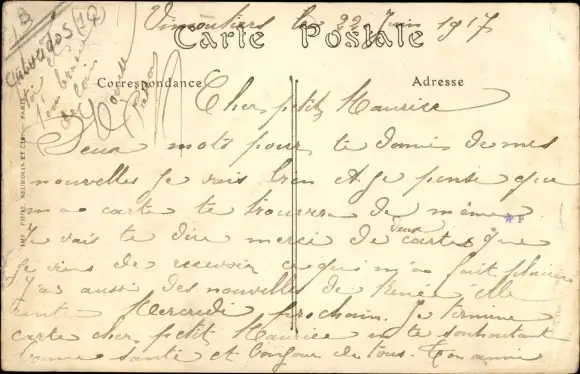 Vimoutiers le 22 Juin 1917
Carte Postale
Correspondance
Adresse
Calvados
Cher petit Maurice
Deux mots pour te donner de mes
nouvelles je vais bien et je pense que
ma carte te trouvera de même.
Je vais te dire merci de deux cartes que
je viens de recevoir ce qui m'a fait plaisir
J'ai aussi des nouvelles de Renée elle
Mercredi prochain. Je termine
carte cher petit Maurice en te souhaitant
bonne santé et bonjour de tous. Ton amie
IMP. PHOT. NEURDEIN ET CIE. - PARIS